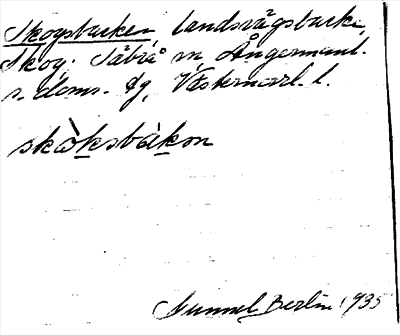 Skogsbacken, landsvägsbacke,
Skog. Säbrå sn, Ångermanl.
s. doms. dg, Västernorrl. l.
skòksbàkon
Gunnel Berlin 1935